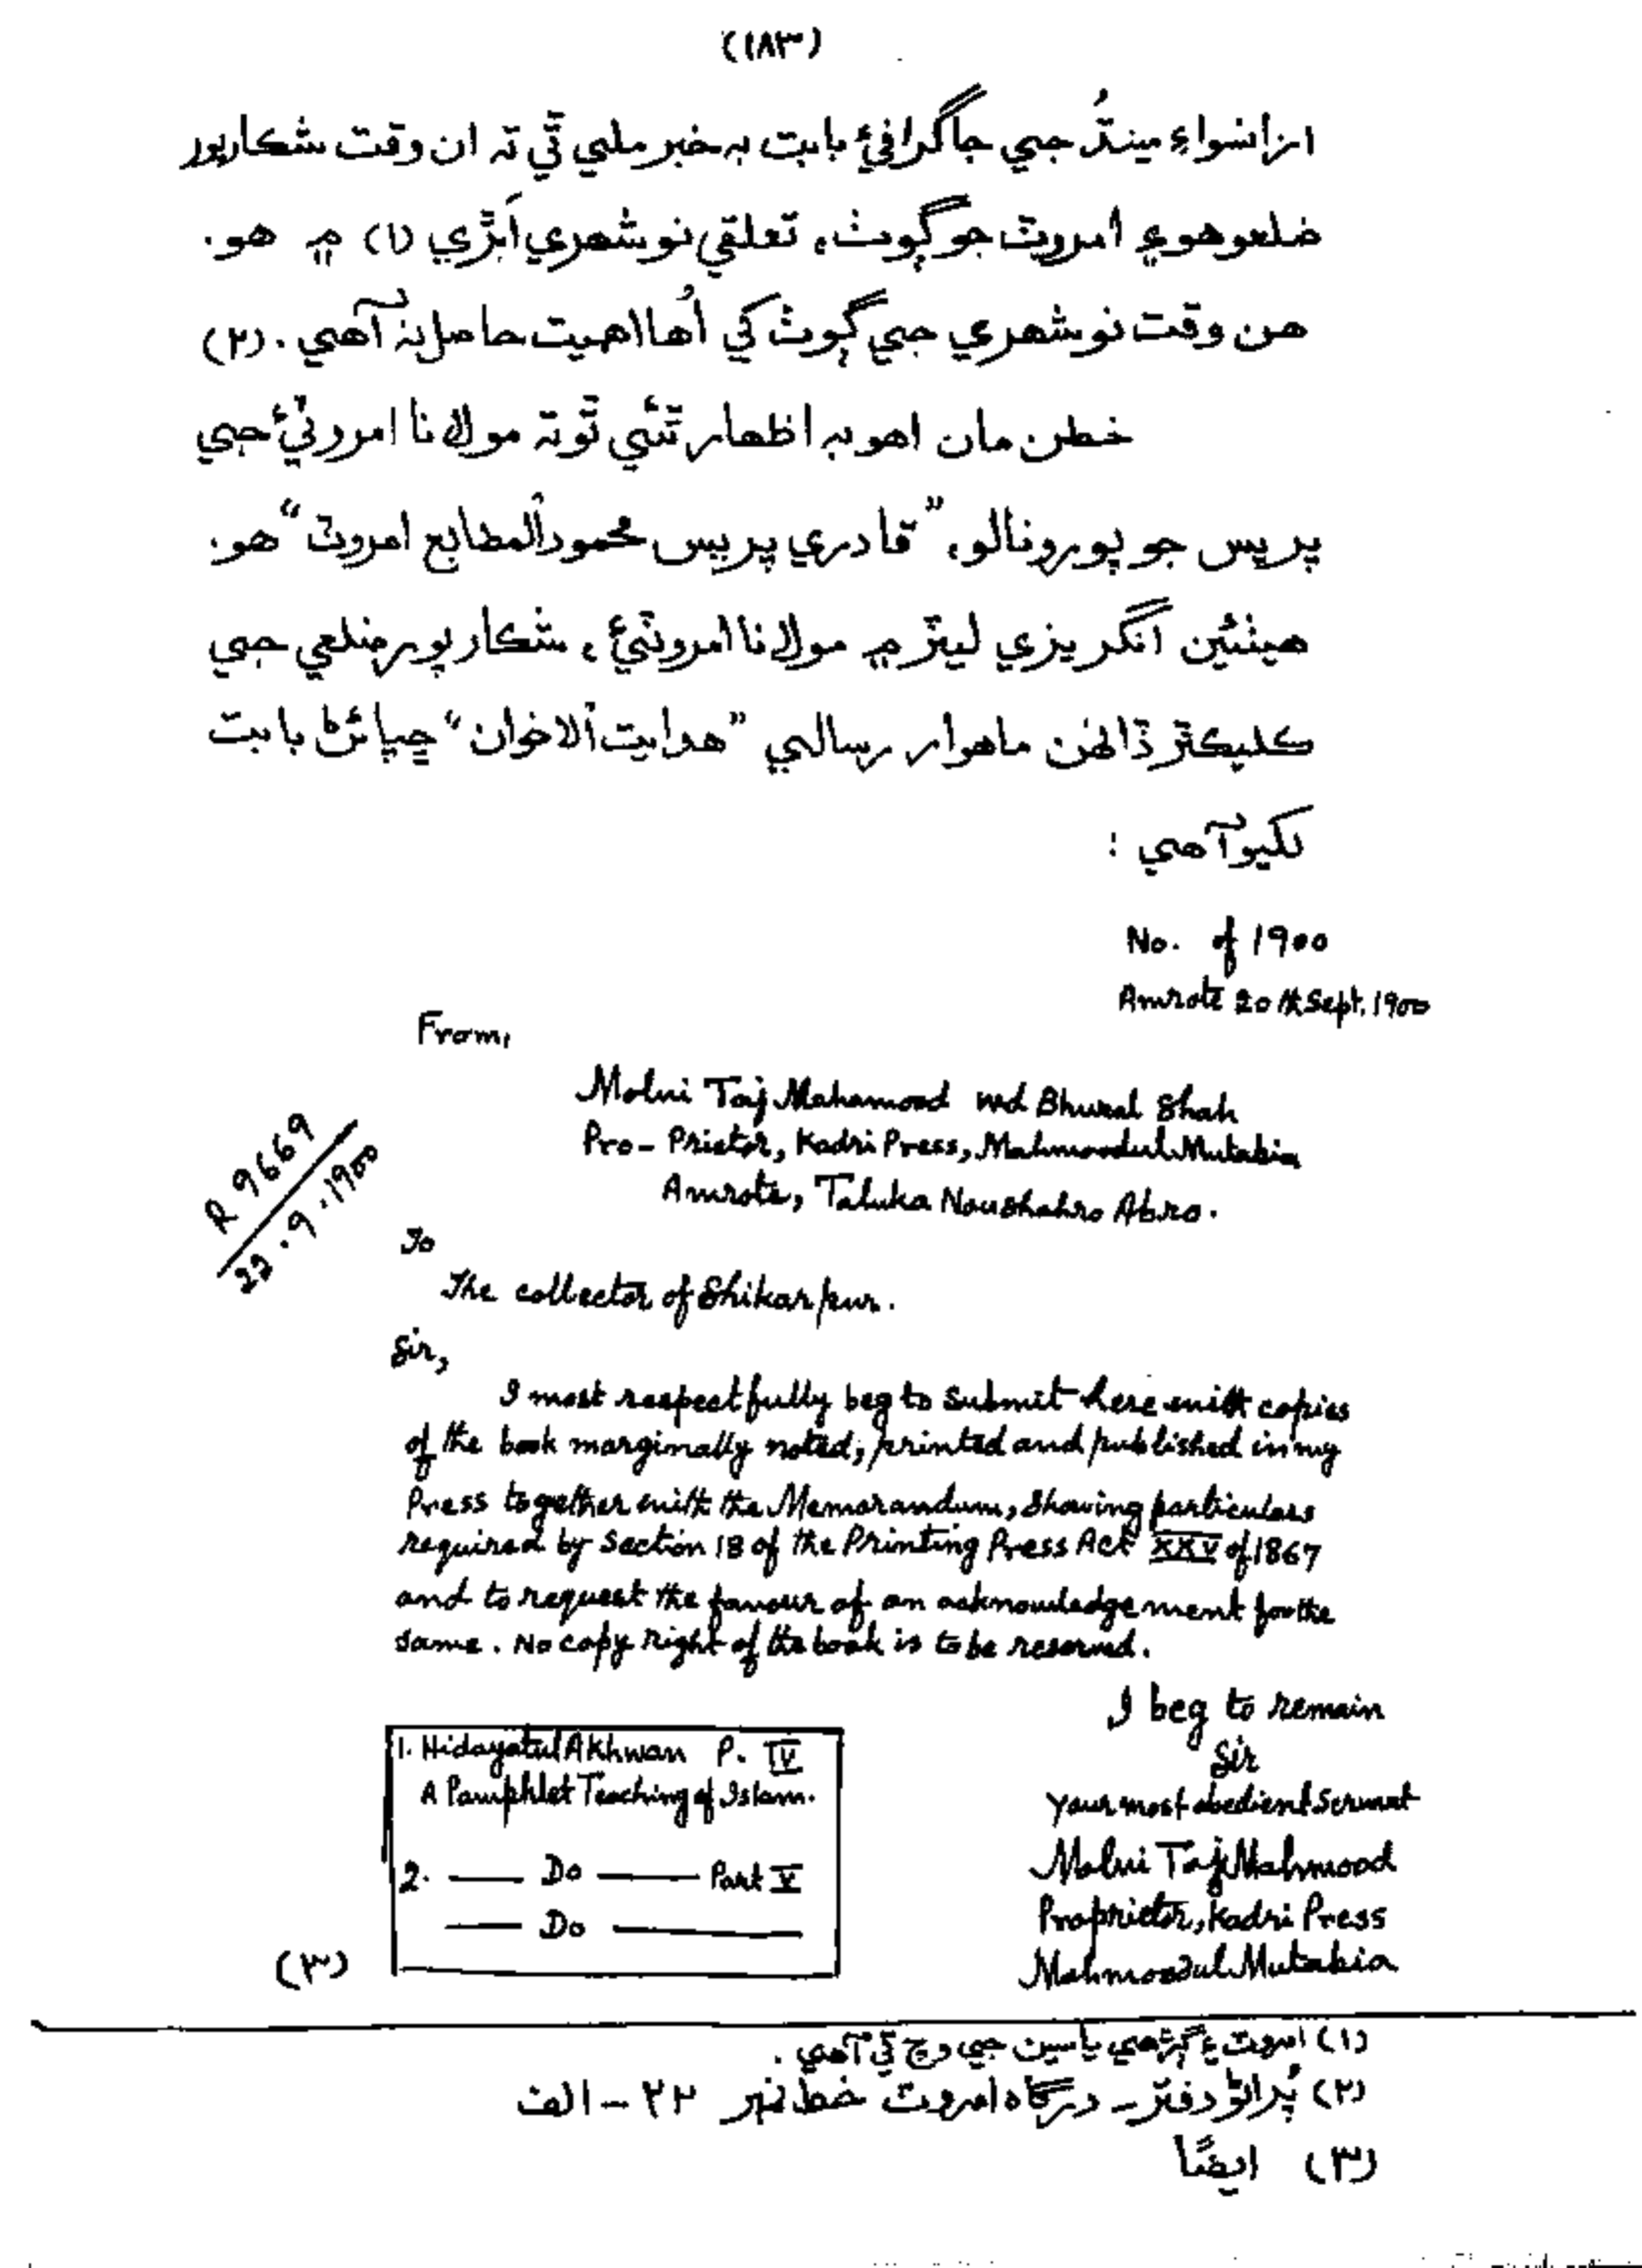 (١٨٣)
ان انسواءِ مينڌُ جي جاگرافيءَ بابت به خبر ملي ٿي ته ان وقت شڪارپور
ضلعو هو ۽ امروٽ جو ڳوٺ، تعلقي نوشهري اَبڙي (١) ۾ هو.
هن وقت نوشهري جي ڳوٺ کي اُها اهميت حاصل نہ آهي. (٢)
خطن مان اهو به اظهار ٿئي ٿو ته مولانا امروٽيءَ جي
پريس جو پورو نالو، ”قادري پريس محمود المطابع امروٽ“ هو.
هيٺئين انگريزي ليٽر ۾ مولانا امروٽيءَ، شڪارپور ضلعي جي
ڪليڪٽر ڏانهن ماهوار رسالي ”هدايت الاخوان“ ڇپائڻ بابت
لکيو آهي :
No. of 1900
Amrote 20th Sept. 1900
From,
Molvi Taj Mahamood wd Bhural Shah
Pro-Prietor, Kadri Press, Mahmoodul Mutabia
Amrote, Taluka Naushahro Abro.
R 9669
22.9.1900
To
The collector of Shikarpur.
Sir,
I most respectfully beg to Submit here with copies
of the book marginally noted; printed and published in my
Press together with the Memorandum, Showing particulars
required by Section 18 of the Printing Press Act XXV of 1867
and to request the favour of an acknowledgement for the
same. No copy right of the book is to be reserved.
I beg to remain
Sir
Your most obedient Servant
Molvi Taj Mahmood
Proprietor, Kadri Press
Mahmoodul Mutabia
1. Hidayatul Akhwan P. IV
A Pamphlet Teaching of Islam.
2. —— Do —— Part V
—— Do ——
(٣)
(١) امروٽ ۽ ڳڙهي ياسين جي وچ تي آهي.
(٢) پُراڻو دفتر – درگاه امروٽ خط نمبر ٢٢ – الف
(٣) ايضًا